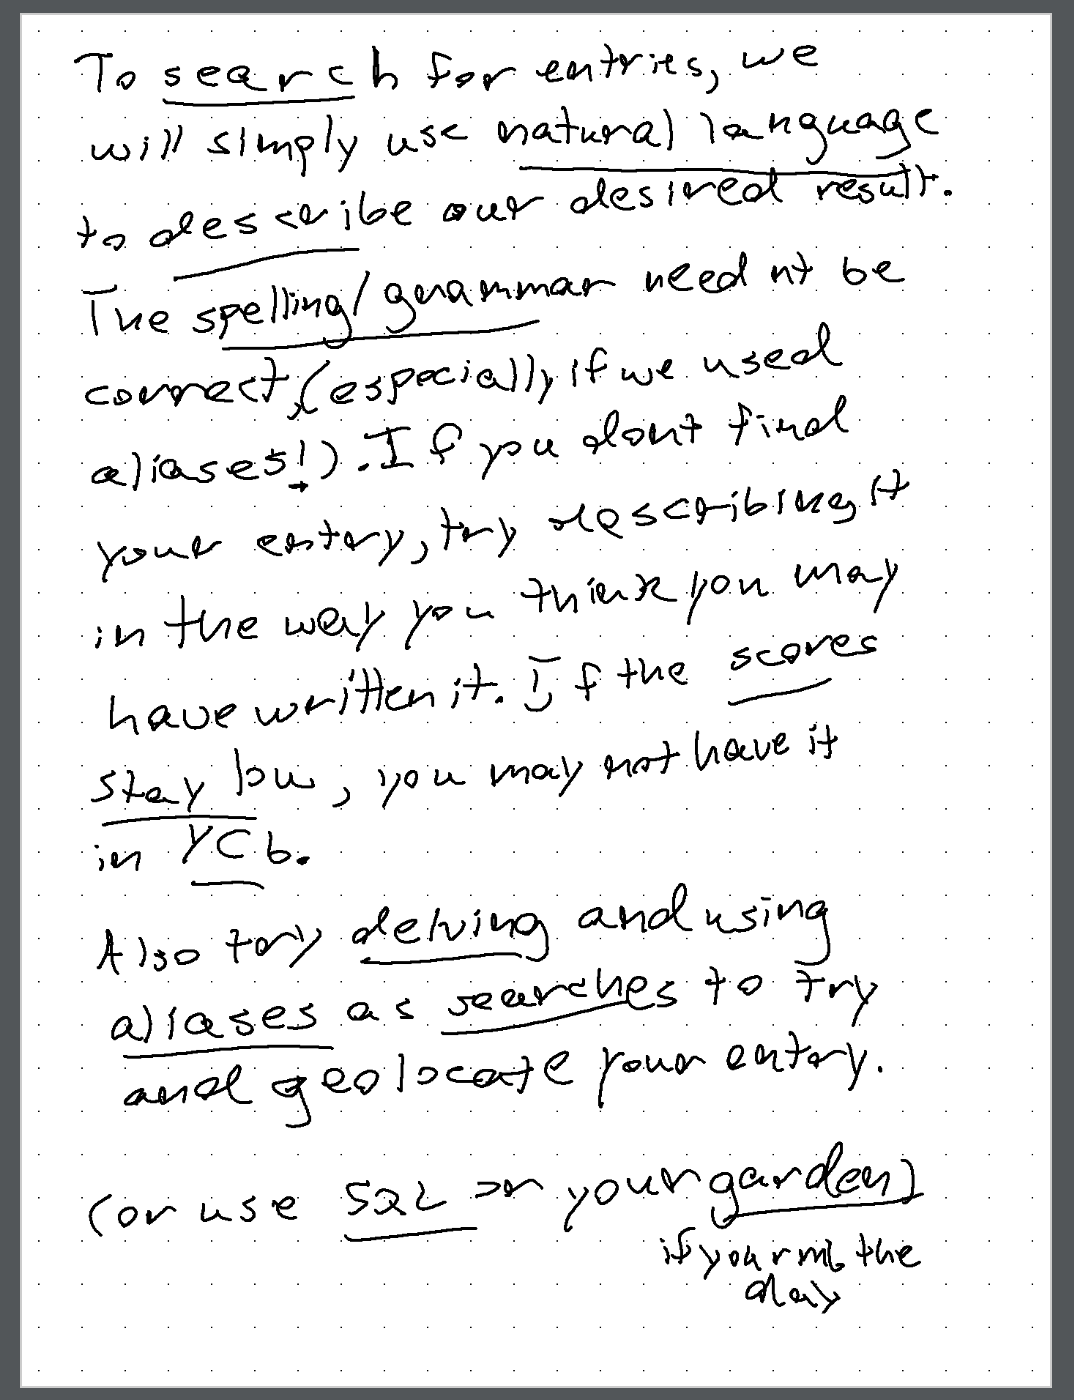 To search for entries, we
will simply use natural language
to describe our desired result.
The spelling/grammar neednt be
correct, (especially if we used
aliases!). If you dont find
your entry, try describing it
in the way you think you may
have written it. If the scores
stay low, you may not have it
in YCb.
Also try delving and using
aliases as searches to try
and geolocate your entry.
(or use SQL or your garden)
if you rmb the
day